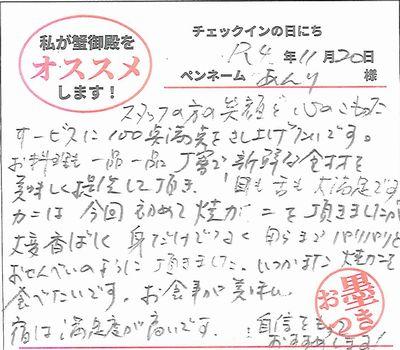 私が蟹御殿を
オススメ
します！
チェックインの日にち
R4年11月20日
ペンネーム あんり 様
スタッフの方の笑顔と心のこもった
サービスに100点満点をさし上げたいです。
お料理も一品一品丁寧で新鮮な食材を
美味しく提供して頂き、目も舌も大満足です
カニは今回初めて焼ガニを頂きましたが
大変香ばしく身だけでなく殻までパリパリと
おせんべいのように頂きました。いつかまた焼カニを
食べたいです。お食事が美味しい
宿は満足度が高いです。自信をもって
おすすめします!
お墨つき